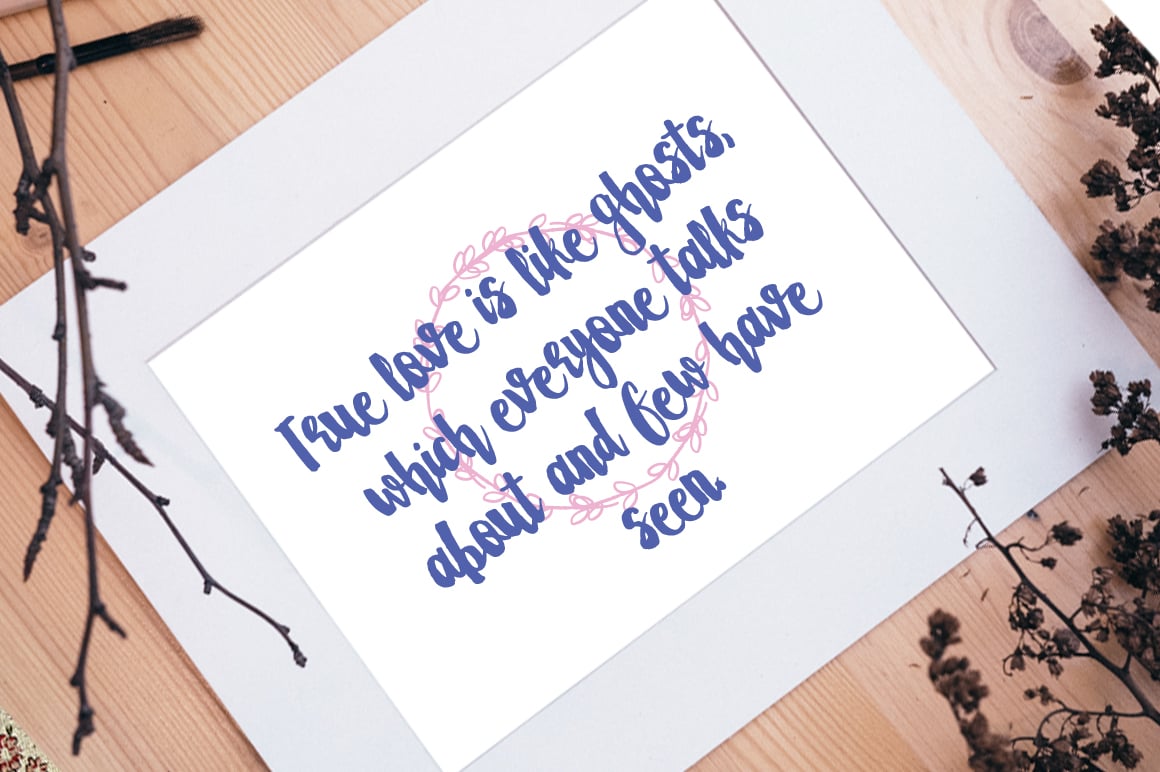 True love is like ghosts,
which everyone talks
about and few have
seen.